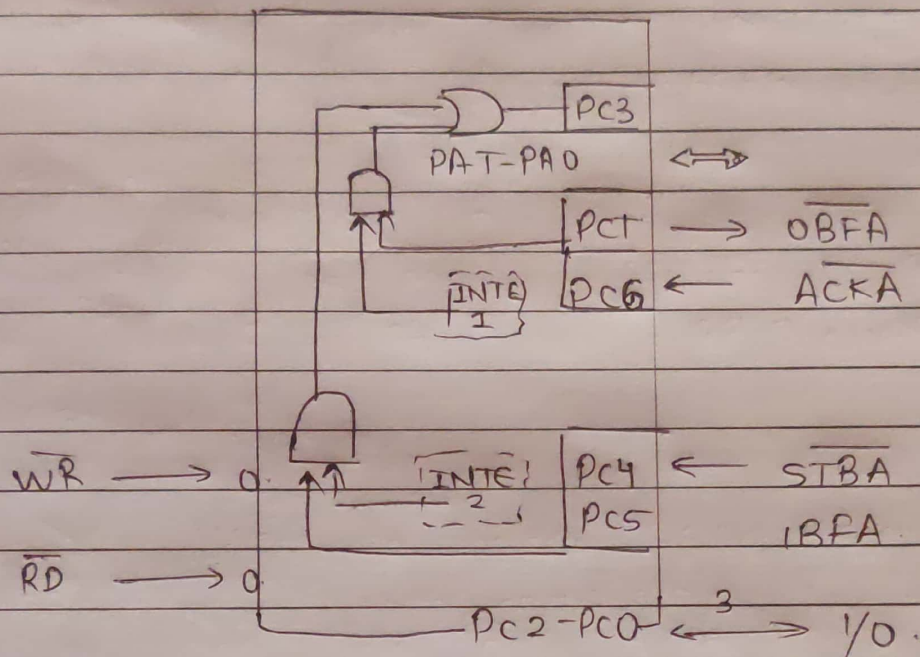 PC3
PA7-PA0
PC7 O̅B̅F̅A̅
INTE PC6 A̅C̅K̅A̅
1
W̅R̅ 0 INTE PC4 S̅T̅B̅A̅
2 PC5 IBFA
R̅D̅ 0
3
PC2-PC0 I/O.